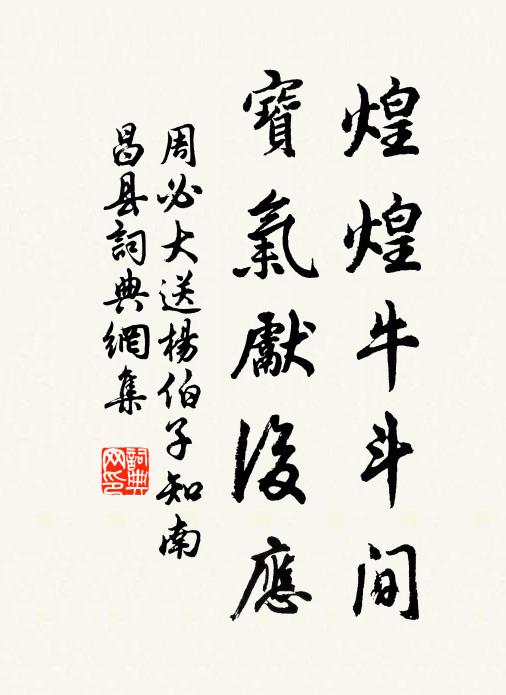 煌煌牛斗间
寶氣獻後應
周必大送楊伯子知南
昌县詞典網集
詞典
网印